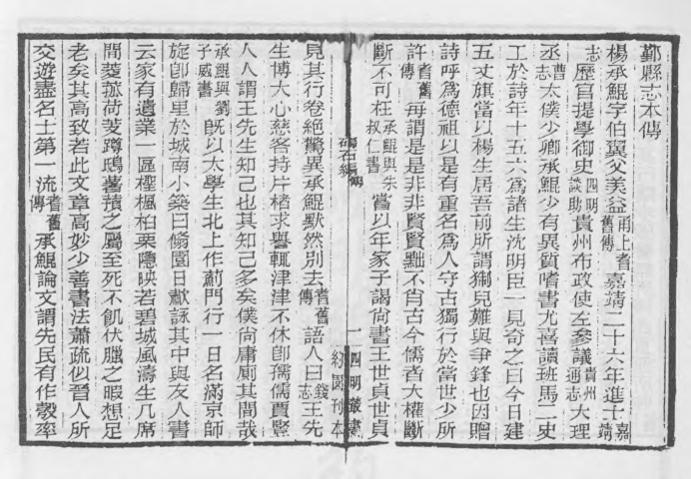 鄞縣志本傳
楊承鯤字伯翼父美益甬上耆舊傳嘉靖二十六年進士嘉靖
志歷官提學御史四明談助貴州布政使左參議貴州通志大理
丞曹志太僕少卿承鯤少有異質嗜書尤喜讀班馬二史
工於詩年十五六爲諸生沈明臣一見奇之曰今日建
五丈旗當以楊生居吾前所謂獅兒難與爭鋒也因贈
詩呼爲德祖以是有重名爲人守古獨行於當世少所
許耆舊傳每謂是是非非賢賢黜不肖古今儒者大權斷
斷不可枉承鯤與朱叔仁書嘗以年家子謁尚書王世貞世貞
碣石編傳
一
四明叢書
約園刊本
見其行卷絕驚異承鯤默然別去耆舊傳語人曰錢志王先
生博大心慈客持片楮求譽輒津津不休卽孺儒賈豎
人人謂王先生知己也其知己多矣僕尚庸廁其間哉
承鯤與劉子威書既以太學生北上作薊門行一日名滿京師
旋卽歸里於城南小築曰園日歗詠其中與友人書
云家有遺業一區楓柏栗隱映若碧城風濤生几席
間菱菰荷芰蹲鴟蕷之屬至死不飢伏臘之暇想足
老矣其高致若此文章高妙少善書法蕭疏似晉人所
交遊盡名士第一流耆舊傳承鯤論文謂先民有作彀率